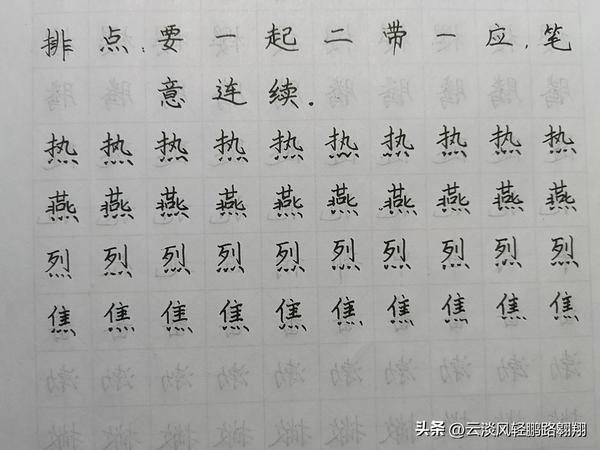 排点:要一起二带一应,笔
意连续.
热热热热热热热热热热
燕燕燕燕燕燕燕燕燕燕
烈烈烈烈烈烈烈烈烈烈
焦焦焦焦焦焦焦焦焦焦
头条 @云淡风轻鹏路翱翔